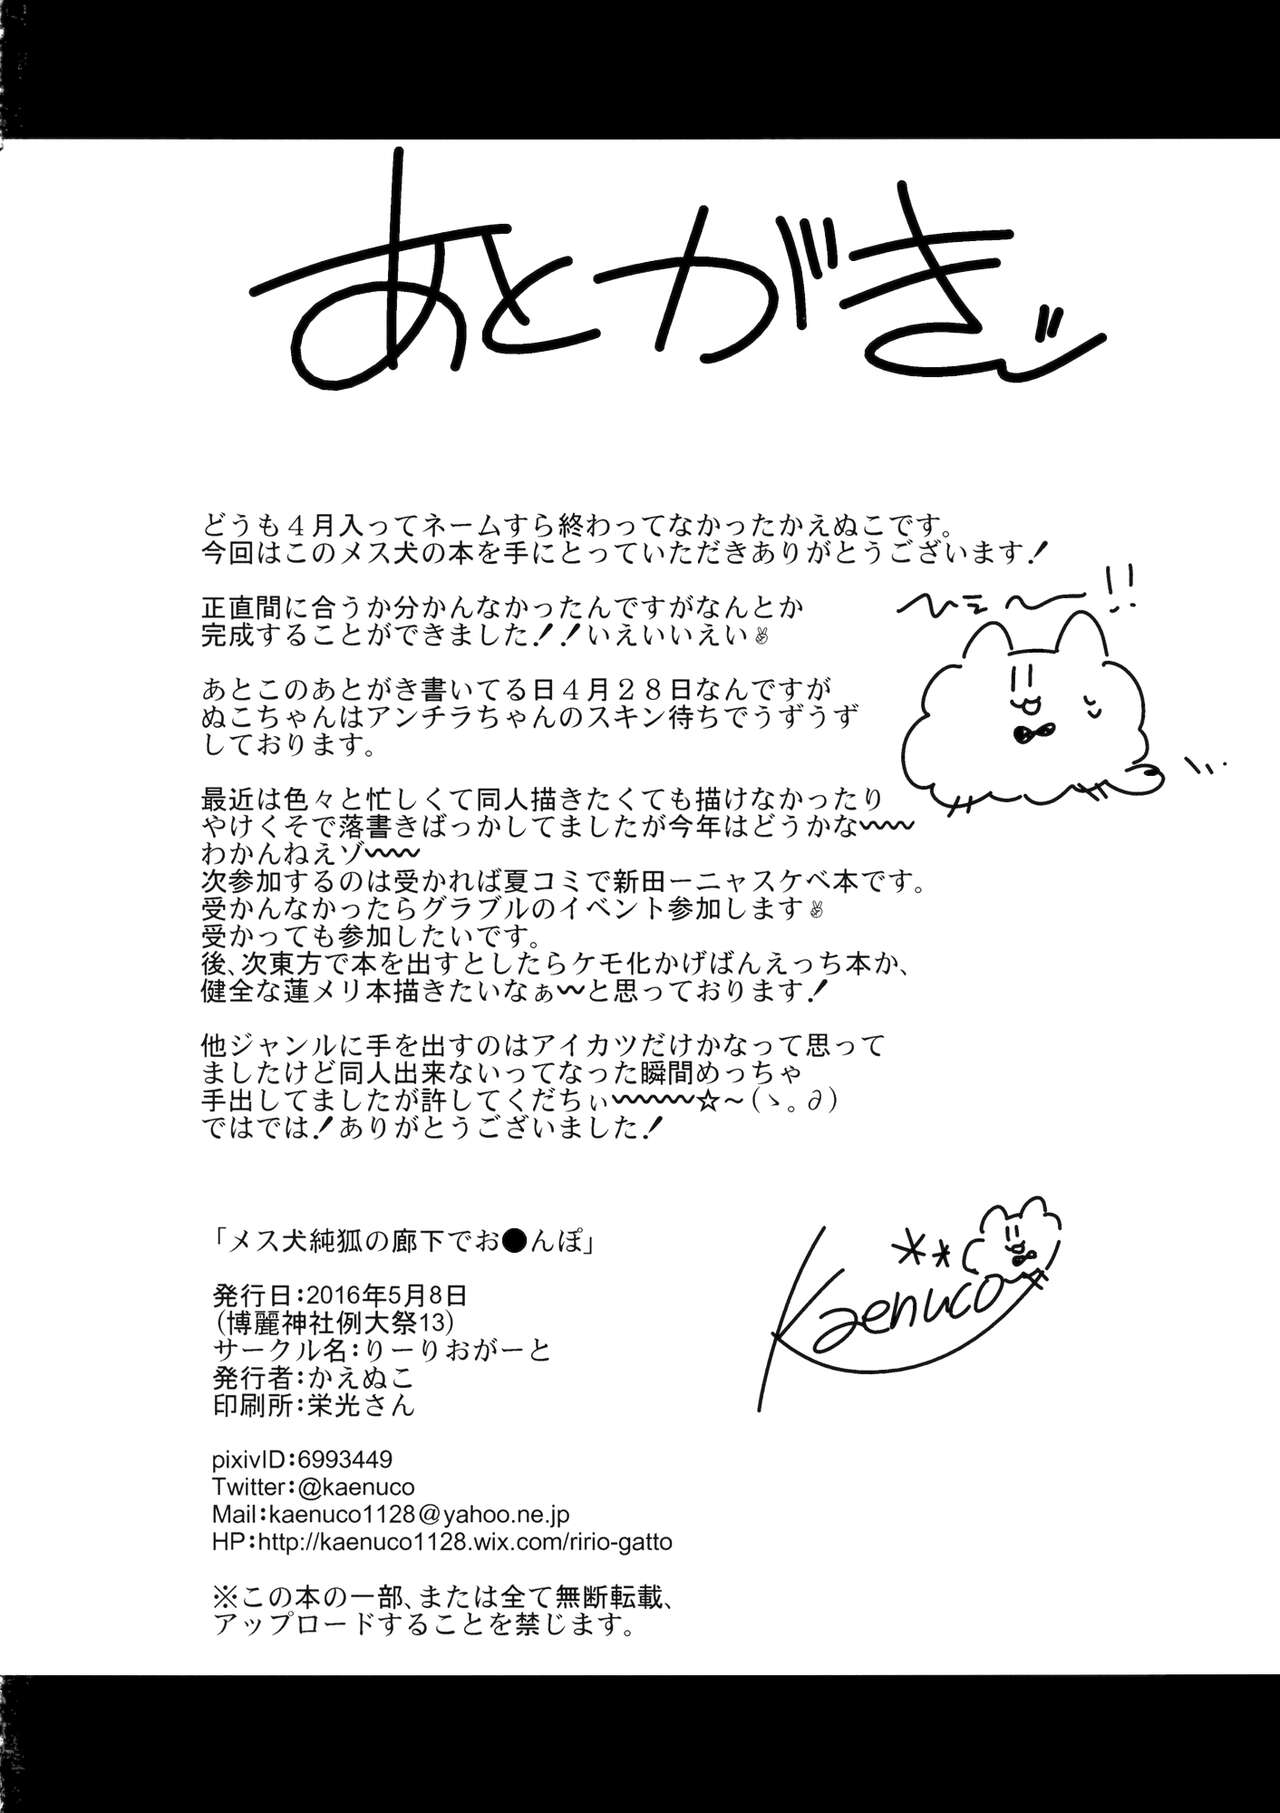 あとがきッ
どうも４月入ってネームすら終わってなかったかえぬこです。
今回はこのメス犬の本を手にとっていただきありがとうございます！
ヘニ〜!!
正直間に合うか分かんなかったんですがなんとか
完成することができました！！いえいいえい✌
あとこのあとがき書いてる日４月２８日なんですが
ぬこちゃんはアンチラちゃんのスキン待ちでうずうず
しております。
最近は色々と忙しくて同人描きたくても描けなかったり
やけくそで落書きばっかしてましたが今年はどうかな〰〰
わかんねえゾ〰〰
次参加するのは受かれば夏コミで新田ーニャスケベ本です。
受かんなかったらグラブルのイベント参加します✌
受かっても参加したいです。
後、次東方で本を出すとしたらケモ化かげばんえっち本か、
健全な蓮メリ本描きたいなぁ〰と思っております！
他ジャンルに手を出すのはアイカツだけかなって思って
ましたけど同人出来ないってなった瞬間めっちゃ
手出してましたが許してくだちぃ〰〰〰☆～(ゝ。∂)
ではでは！ありがとうございました！
「メス犬純狐の廊下でお●んぽ」
Kaenuco**
発行日：2016年5月8日
（博麗神社例大祭13）
サークル名：りーりおがーと
発行者：かえぬこ
印刷所：栄光さん
pixivID：6993449
Twitter：@kaenuco
Mail：kaenuco1128@yahoo.ne.jp
HP：http://kaenuco1128.wix.com/ririo-gatto
※この本の一部、または全て無断転載、
アップロードすることを禁じます。